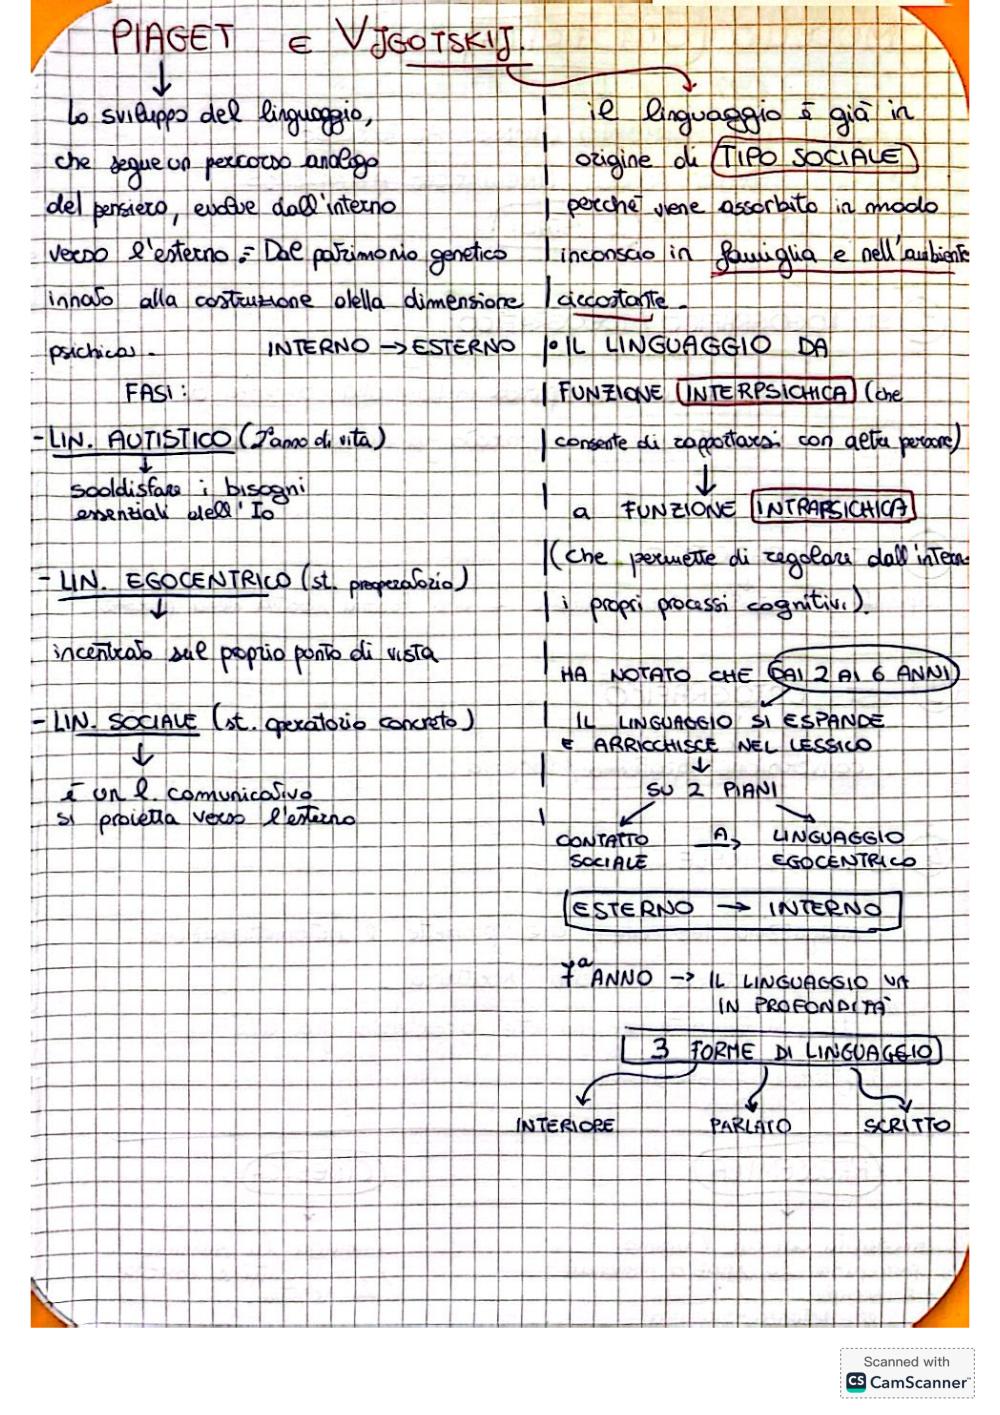 PIAGET E VJGOTSKIJ.
Lo sviluppo del linguaggio,
che segue un percorso analogo
del pensiero, evolve dall'interno
verso l'esterno = Dal patrimonio genetico
innato alla costruzione della dimensione
psichica.
INTERNO → ESTERNO
FASI:
- LIN. AUTISTICO (2°anno di vita)
↓
soddisfare i bisogni
essenziali dell'Io
- LIN. EGOCENTRICO (st. preoperatorio)
↓
incentrato sul proprio punto di vista
- LIN. SOCIALE (st. operatorio concreto)
↓
è un l. comunicativo
si proietta verso l'esterno
il linguaggio è già in
origine di TIPO SOCIALE
perché viene assorbito in modo
inconscio in famiglia e nell'ambiente
circostante.
• IL LINGUAGGIO DA
FUNZIONE INTERPSICHICA (che
consente di rapportarsi con altre persone)
↓
a FUNZIONE INTRAPSICHICA
(che permette di regolare dall'interno
i propri processi cognitivi).
HA NOTATO CHE DAI 2 AI 6 ANNI
IL LINGUAGGIO SI ESPANDE
E ARRICCHISCE NEL LESSICO
↓
SU 2 PIANI
CONTATTO A → LINGUAGGIO
SOCIALE EGOCENTRICO
ESTERNO → INTERNO
7° ANNO → IL LINGUAGGIO VA
IN PROFONDITÀ
3 FORME DI LINGUAGGIO
INTERIORE PARLATO SCRITTO
Scanned with
CS CamScanner